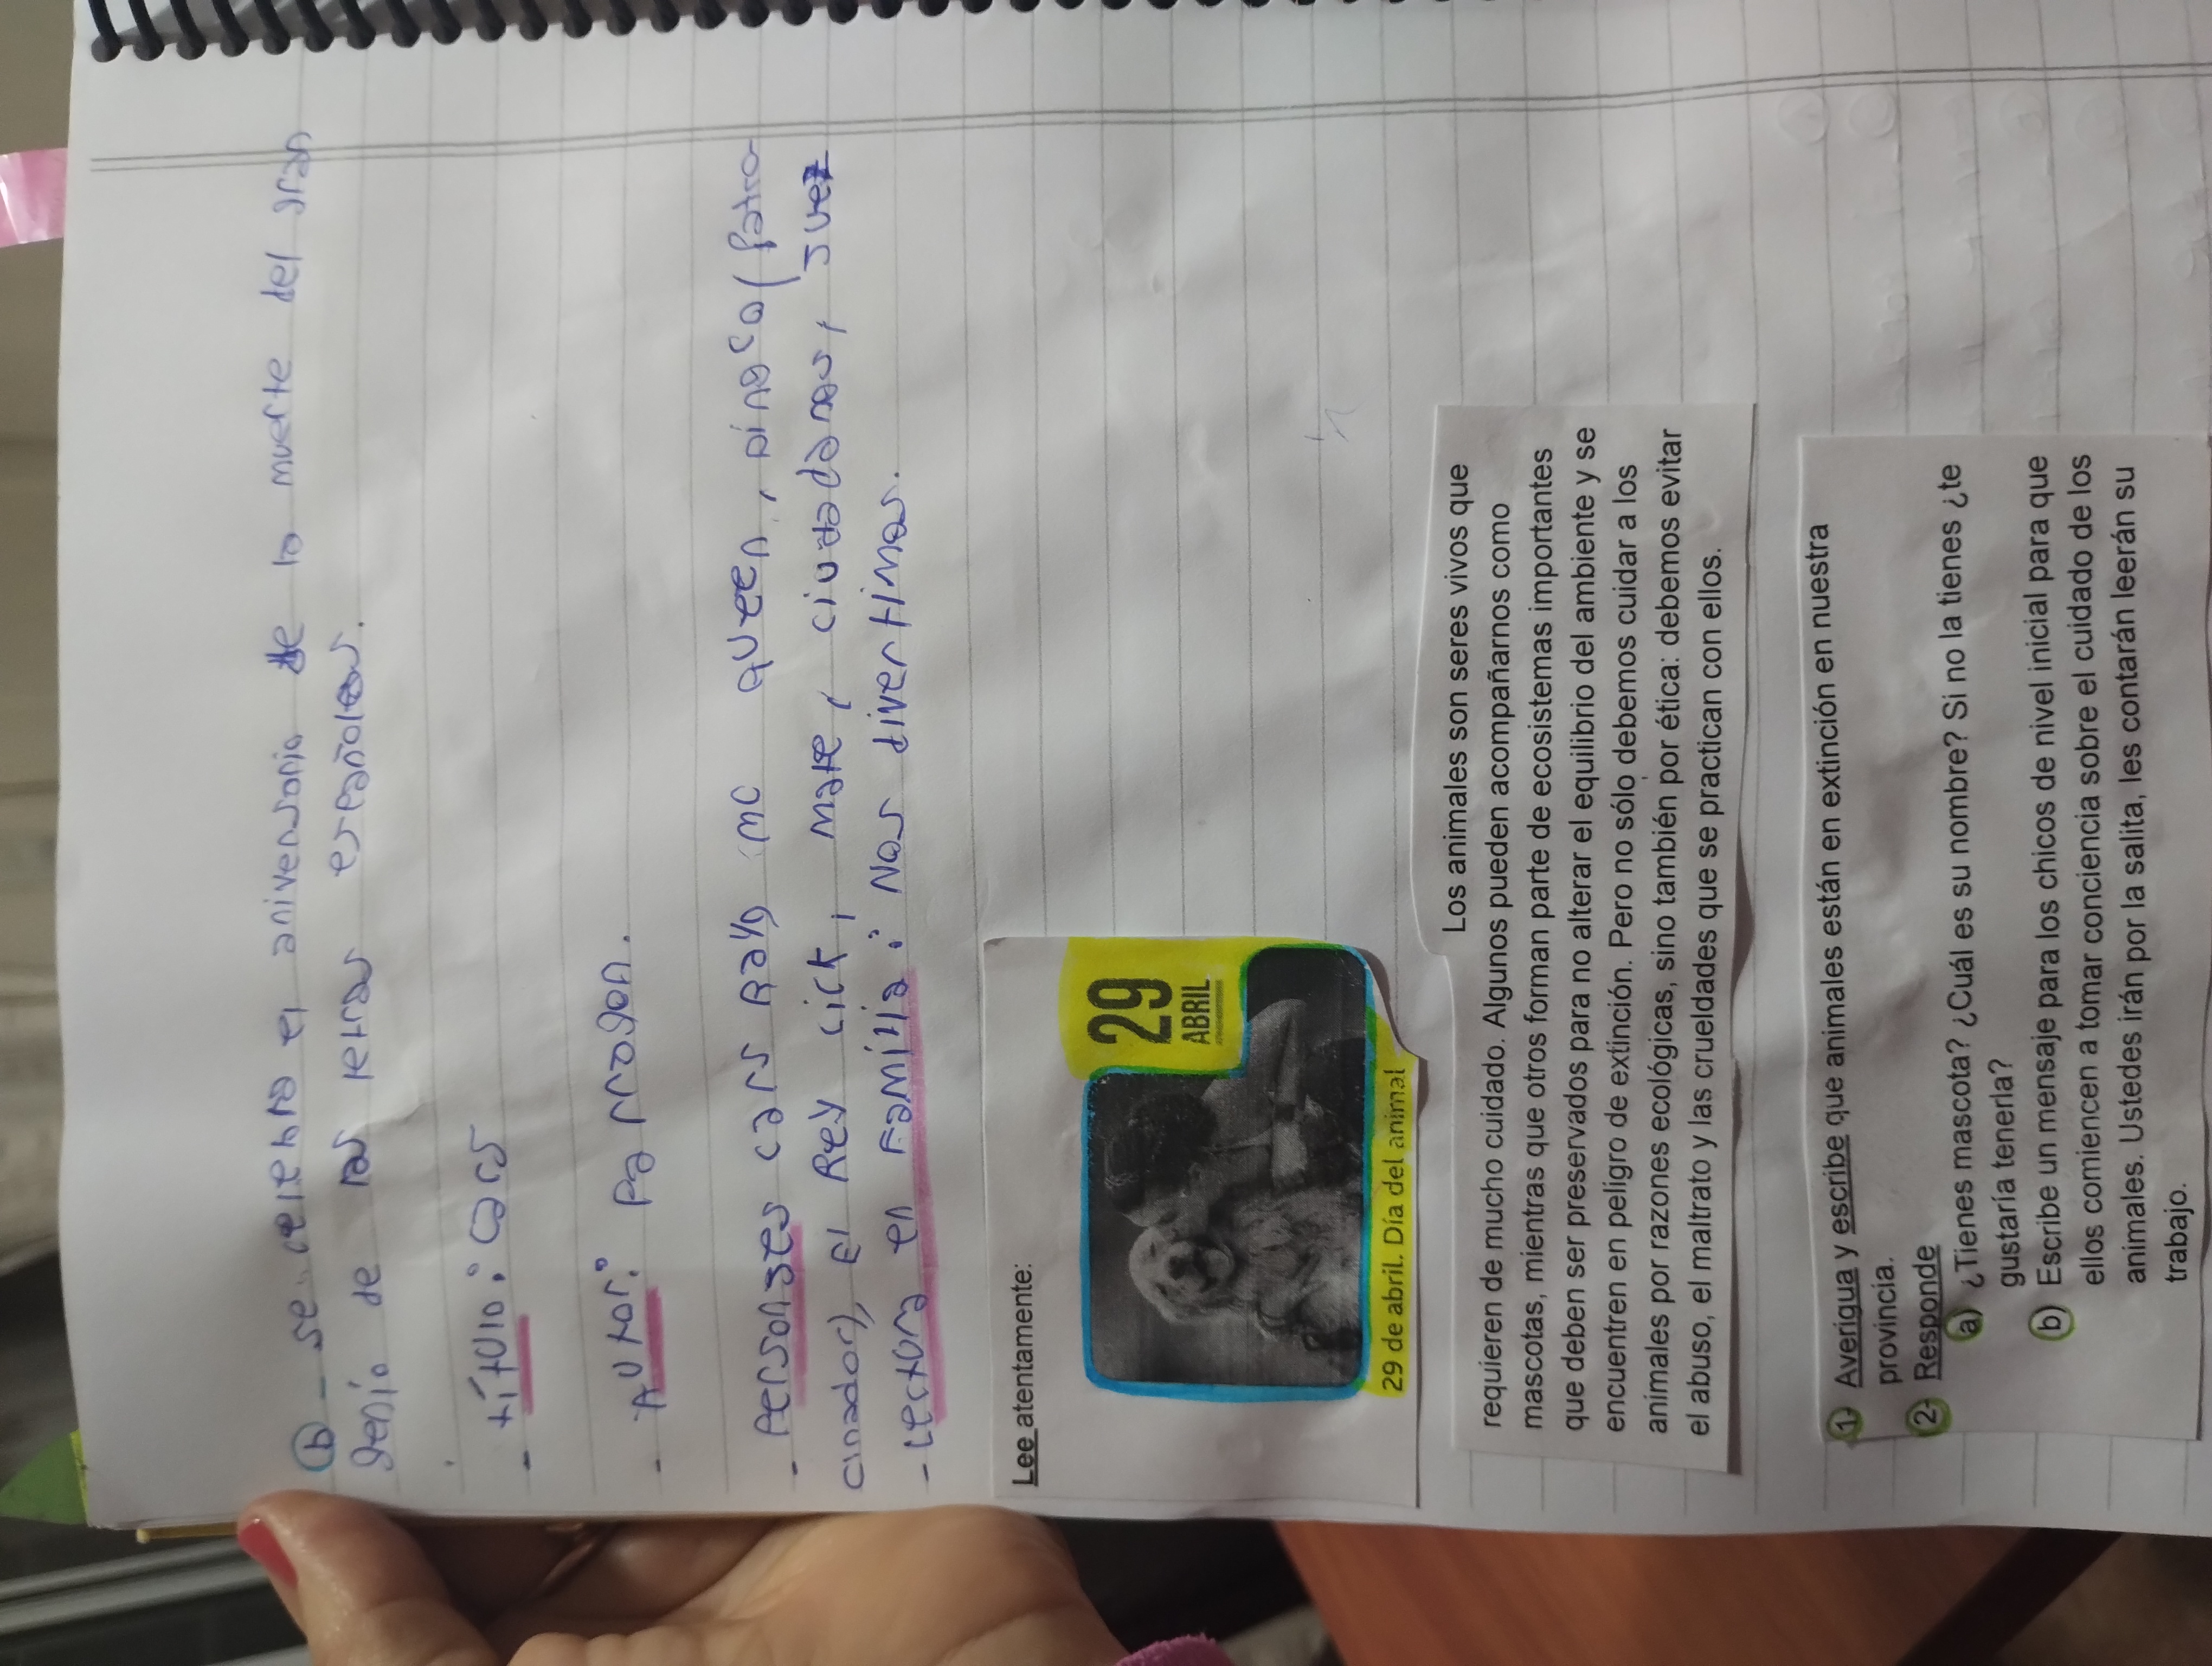 b - se celebra el aniversario de la muerte del gran
genio de las letras españolas.
- título: cars
- Autor: Parragon.
- Personajes cars Rayo mc queen, Dinoco (Patro
cinador), El Rey, Chick, mate, ciudadanos, Juez
- Lectura en Familia: Nos divertimos.
Lee atentamente:
29
ABRIL
29 de abril. Día del animal
Los animales son seres vivos que
requieren de mucho cuidado. Algunos pueden acompañarnos como
mascotas, mientras que otros forman parte de ecosistemas importantes
que deben ser preservados para no alterar el equilibrio del ambiente y se
encuentren en peligro de extinción. Pero no sólo debemos cuidar a los
animales por razones ecológicas, sino también por ética: debemos evitar
el abuso, el maltrato y las crueldades que se practican con ellos.
1- Averigua y escribe que animales están en extinción en nuestra
provincia.
2- Responde
a) ¿Tienes mascota? ¿Cuál es su nombre? Si no la tienes ¿te
gustaría tenerla?
b) Escribe un mensaje para los chicos de nivel inicial para que
ellos comiencen a tomar conciencia sobre el cuidado de los
animales. Ustedes irán por la salita, les contarán leerán su
trabajo.